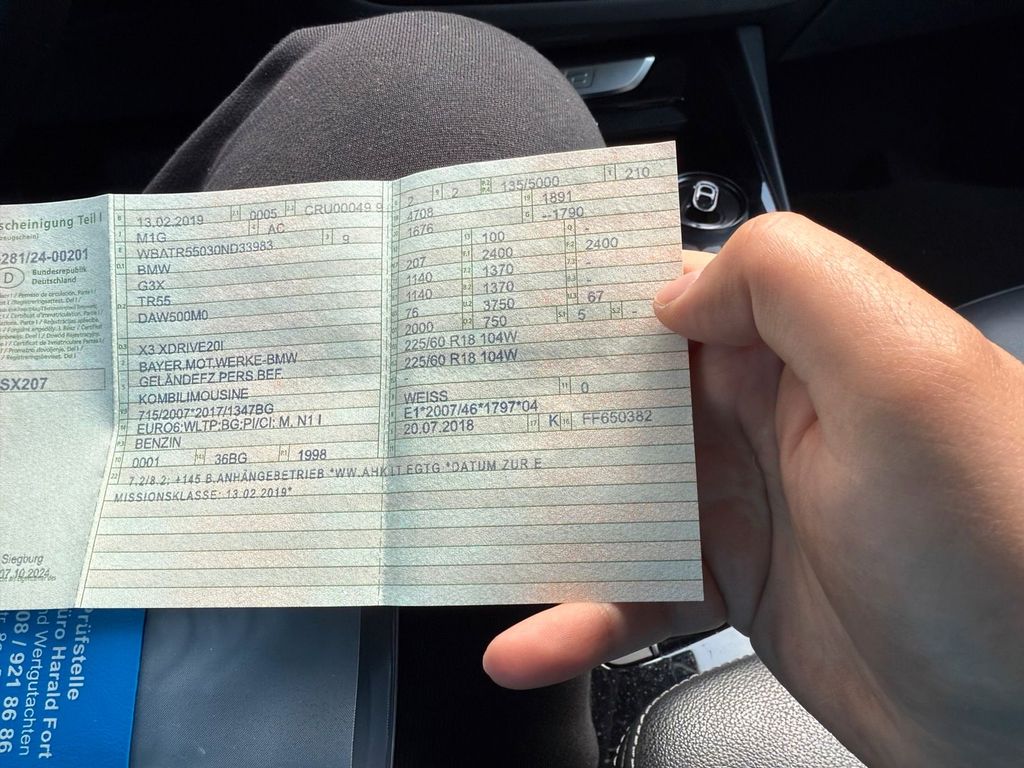 scheinigung Teil I
281/24-00201
D Bundesrepublik
Deutschland
SX207
Siegburg
07.10.2024
13.02.2019 0005 CRU00049 9
M1G AC
WBATR55030ND33983 9
BMW
G3X
TR55
DAW500M0
X3 XDRIVE20I
BAYER.MOT.WERKE-BMW
GELÄNDEFZ.PERS.BEF.
KOMBILIMOUSINE
715/2007*2017/1347BG
EURO6;WLTP;BG;PI/CI; M, N1 I
BENZIN
0001 36BG 1998
2 2 135/5000 210
4708 1891
1676 --1790
- 100 -
207 2400 2400
1140 1370 -
1140 1370 -
76 3750 67
2000 750 5 -
225/60 R18 104W
225/60 R18 104W
-
WEISS 0
E1*2007/46*1797*04
20.07.2018 K FF650382
7.2/8.2: +145 B.ANHÄNGEBETRIEB *WW.AHK LT.EGTG *DATUM ZUR E
MISSIONSKLASSE: 13.02.2019*
Prüfstelle
üro Harald Fort
d Wertgutachten
08 / 921 86 86